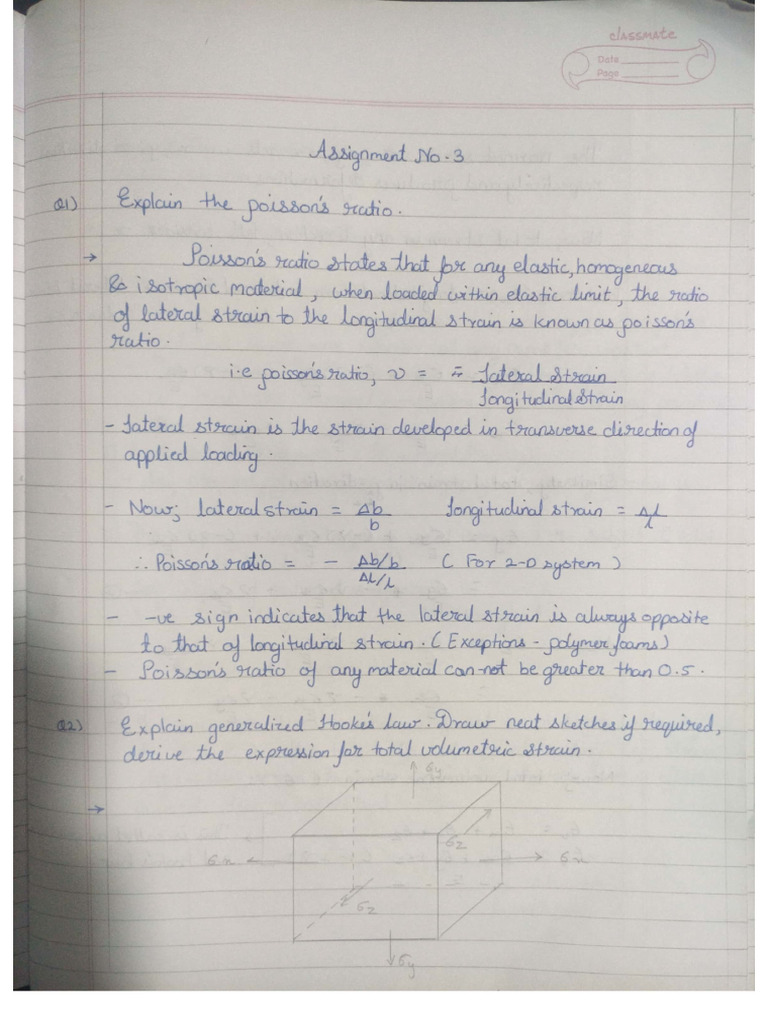 classmate
Date
Page
Assignment No. 3
Q1) Explain the poisson's ratio.
→ Poisson's ratio states that for any elastic, homogeneous
& isotropic material, when loaded within elastic limit, the ratio
of lateral strain to the longitudinal strain is known as poisson's
ratio.
i.e poisson's ratio, ν = - Lateral Strain / Longitudinal Strain
- Lateral strain is the strain developed in transverse direction of
applied loading.
- Now; lateral strain = Δb/b Longitudinal strain = Δl/l
∴ Poisson's ratio = - Δb/b / Δl/l ( For 2-D system )
- -ve sign indicates that the lateral strain is always opposite
to that of longitudinal strain. (Exceptions - polymer foams)
- Poisson's ratio of any material can-not be greater than 0.5.
Q2) Explain generalized Hooke's law. Draw neat sketches if required,
derive the expression for total volumetric strain.
→
σy
σz
σx σx
σz
σy